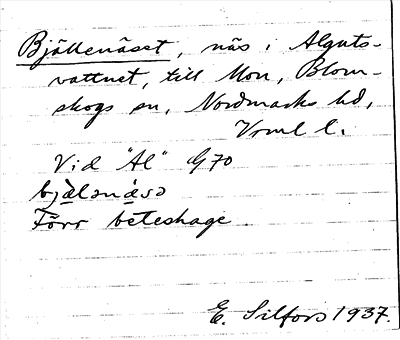 Bjällenäset, näs i Alguts-
vattnet, till Mon, Blom-
skogs sn, Nordmarks hd,
Vrml l.
Vid "Al" G70
bjälənäsə
Förr beteshage.
E. Silfors 1937.